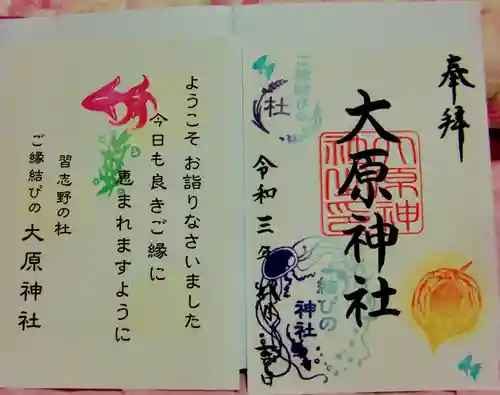 奉拝
大原神社
大原神社印
令和三年
ご縁結びの
杜
結びの
神社
ようこそ お詣りなさいました
今日も良きご縁に
恵まれますように
習志野の杜
ご縁結びの 大原神社